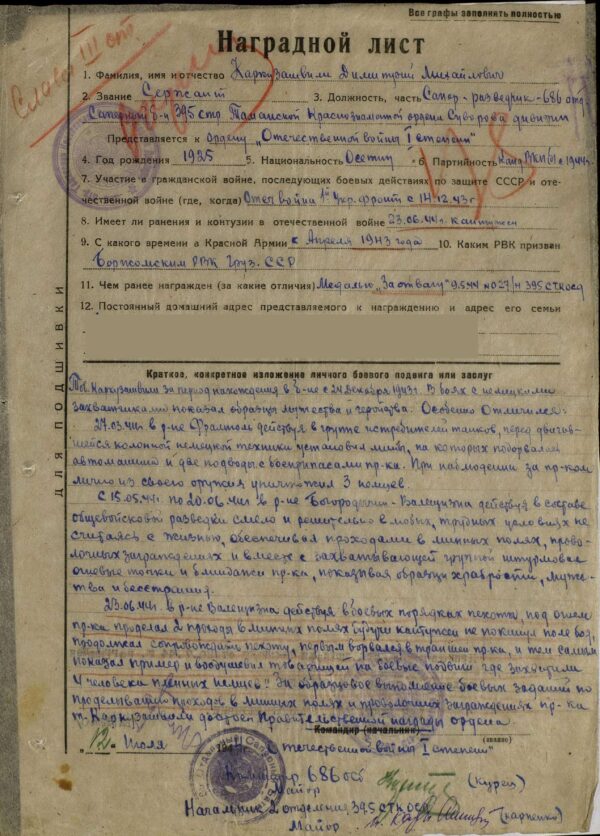 Все графы заполнять полностью
Славы III ст.
Наградной лист
1. Фамилия, имя и отчество Каркузашвили Димитрий Михайлович
2. Звание Сержант 3. Должность, часть Сапер-разведчик - 686 отд
Саперный б-н 395 стр Таманской Краснознаменной ордена Суворова дивизии
Представляется к ордену „Отечественной войны I степени"
4. Год рождения 1925 5. Национальность Осетин 6. Партийность Канд ВКП(б) с 1944г.
7. Участие в гражданской войне, последующих боевых действиях по защите СССР и оте-
чественной войне (где, когда) Отеч война 1й Укр. фронт с 14.12.43г
8. Имеет ли ранения и контузии в отечественной войне 23.06.44г. контужен
9. С какого времени в Красной Армии с Апреля 1943 года 10. Каким РВК призван
Боржомским РВК Груз. ССР
11. Чем ранее награжден (за какие отличия) Медалью „За отвагу" 9.5.44 №027/н 395 СТКОСД
12. Постоянный домашний адрес представляемого к награждению и адрес его семьи
ДЛЯ ПОДШИВКИ
Краткое, конкретное изложение личного боевого подвига или заслуг
Тов. Каркузашвили за период нахождения в б-не с 24 декабря 1943г. В боях с немецкими
захватчиками показал образцы мужества и геройства. Особенно Отличился:
27.03.44г. в р-не действуя в группе истребителей танков, перед двигав-
шейся колонной немецкой техники установил мины, на которых подорвал
автомашин и две подводы с боеприпасами пр-ка. При наблюдении за пр-ком
лично из своего оружия уничтожил 3 немцев.
С 15.05.44г. по 20.06.44г. в р-не Богородычин - Валещизна действуя в составе
общевойсковой разведки смело и решительно в любых, трудных условиях не
считаясь с жизнью, обеспечивал проходами в минных полях, прово-
лочных заграждениях и вместе с захватывающей группой штурмовал
огневые точки и блиндажи пр-ка, показывая образцы храбрости, муже-
ства и бесстрашия.
23.06.44г. в р-не Валещизна действуя в боевых порядках пехоты, под огнем
пр-ка проделал 2 прохода в минных полях будучи контужен не покинул поле боя,
продолжал сопровождать пехоту, первым ворвался в траншеи пр-ка, и тем самым
показал пример и воодушевил товарищей на боевые подвиги где захватили
4 человека пленных немцев. За образцовое выполнение боевых заданий по
проделыванию проходов в минных полях и проволочных заграждениях пр-ка
т. Каркузашвили достоен Правительственной награды ордена
Командир (начальник)
(звание)
„Отечественной войны I степени"
„12" Июля 194
Командир 686 осб
Майор (Курец)
Начальник 2 отделения 395 СТКОСД
Майор (Карпенко)